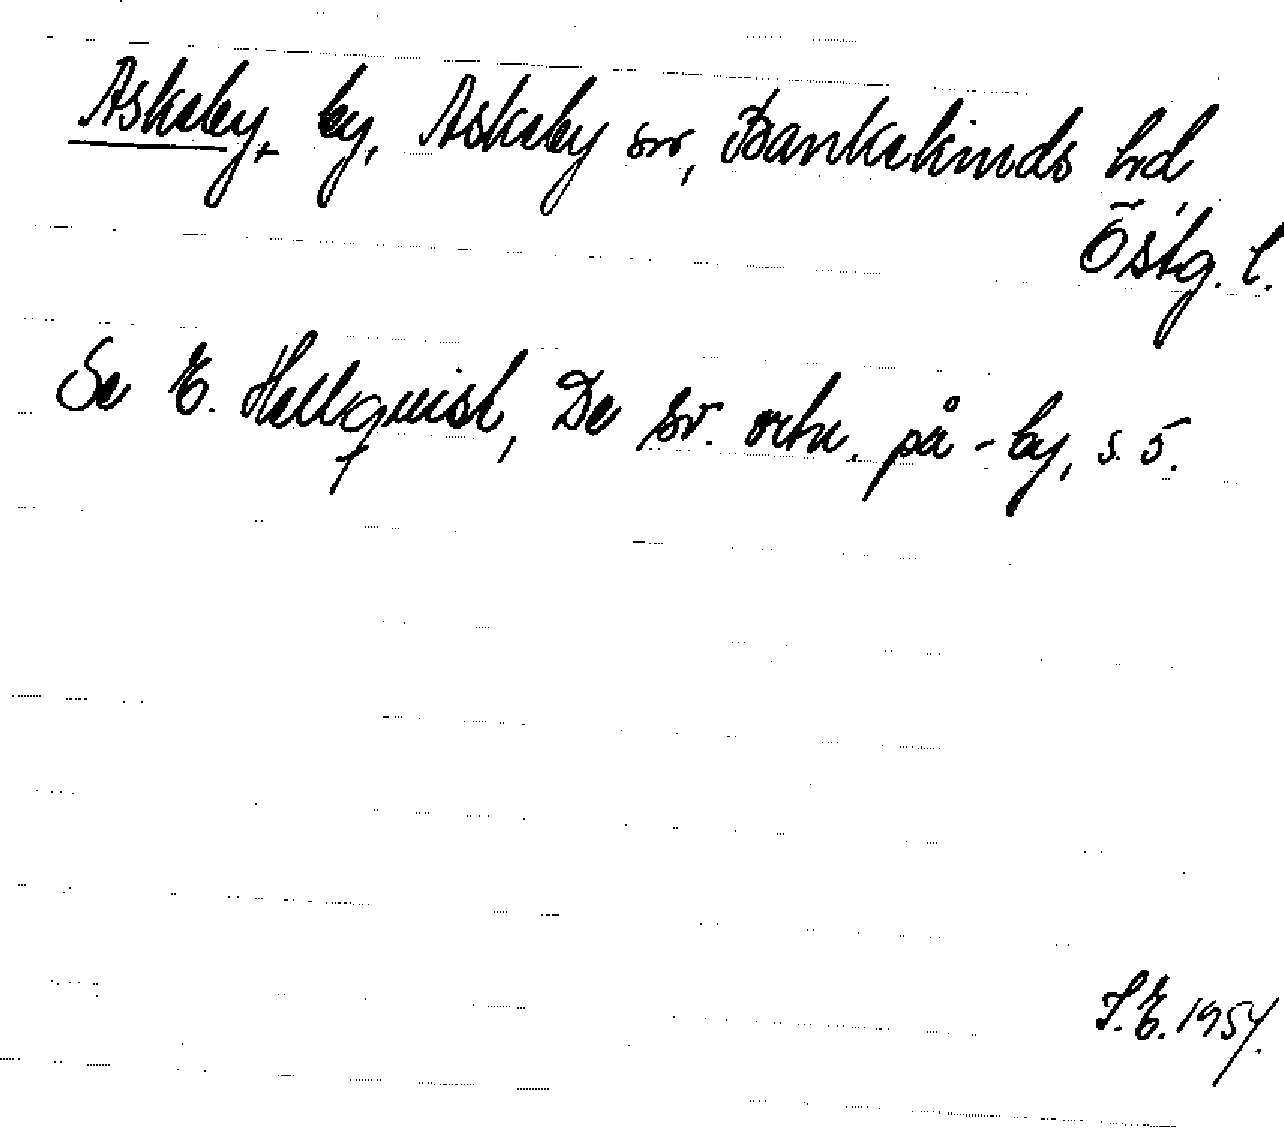 Askeby, by, Askeby sn, Bankekinds hd,
Östg. l.
Se E. Hellquist, De sv. ortn. på -by, s. 5.
S.E. 1954.